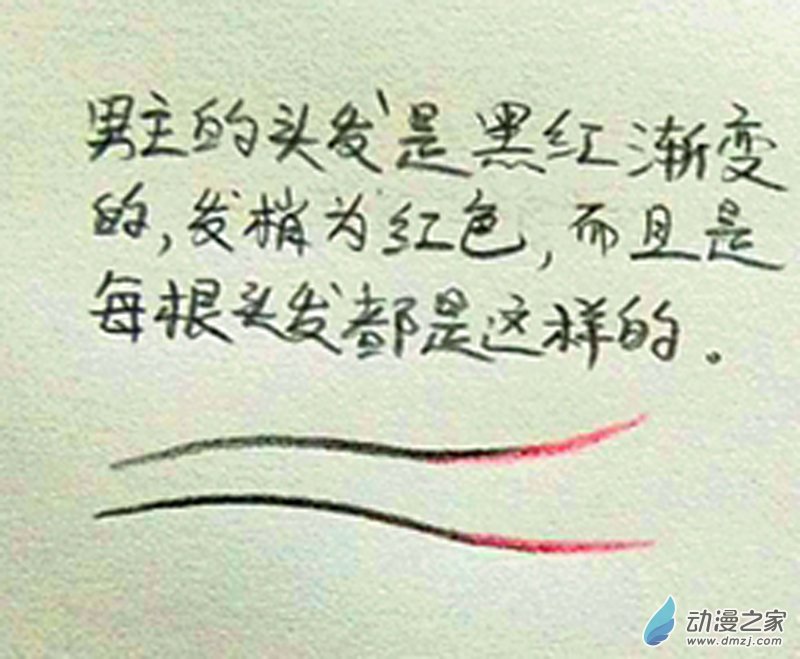 男主的头发是黑红渐变
的,发梢为红色,而且是
每根头发都是这样的。
动漫之家
www.dmzj.com